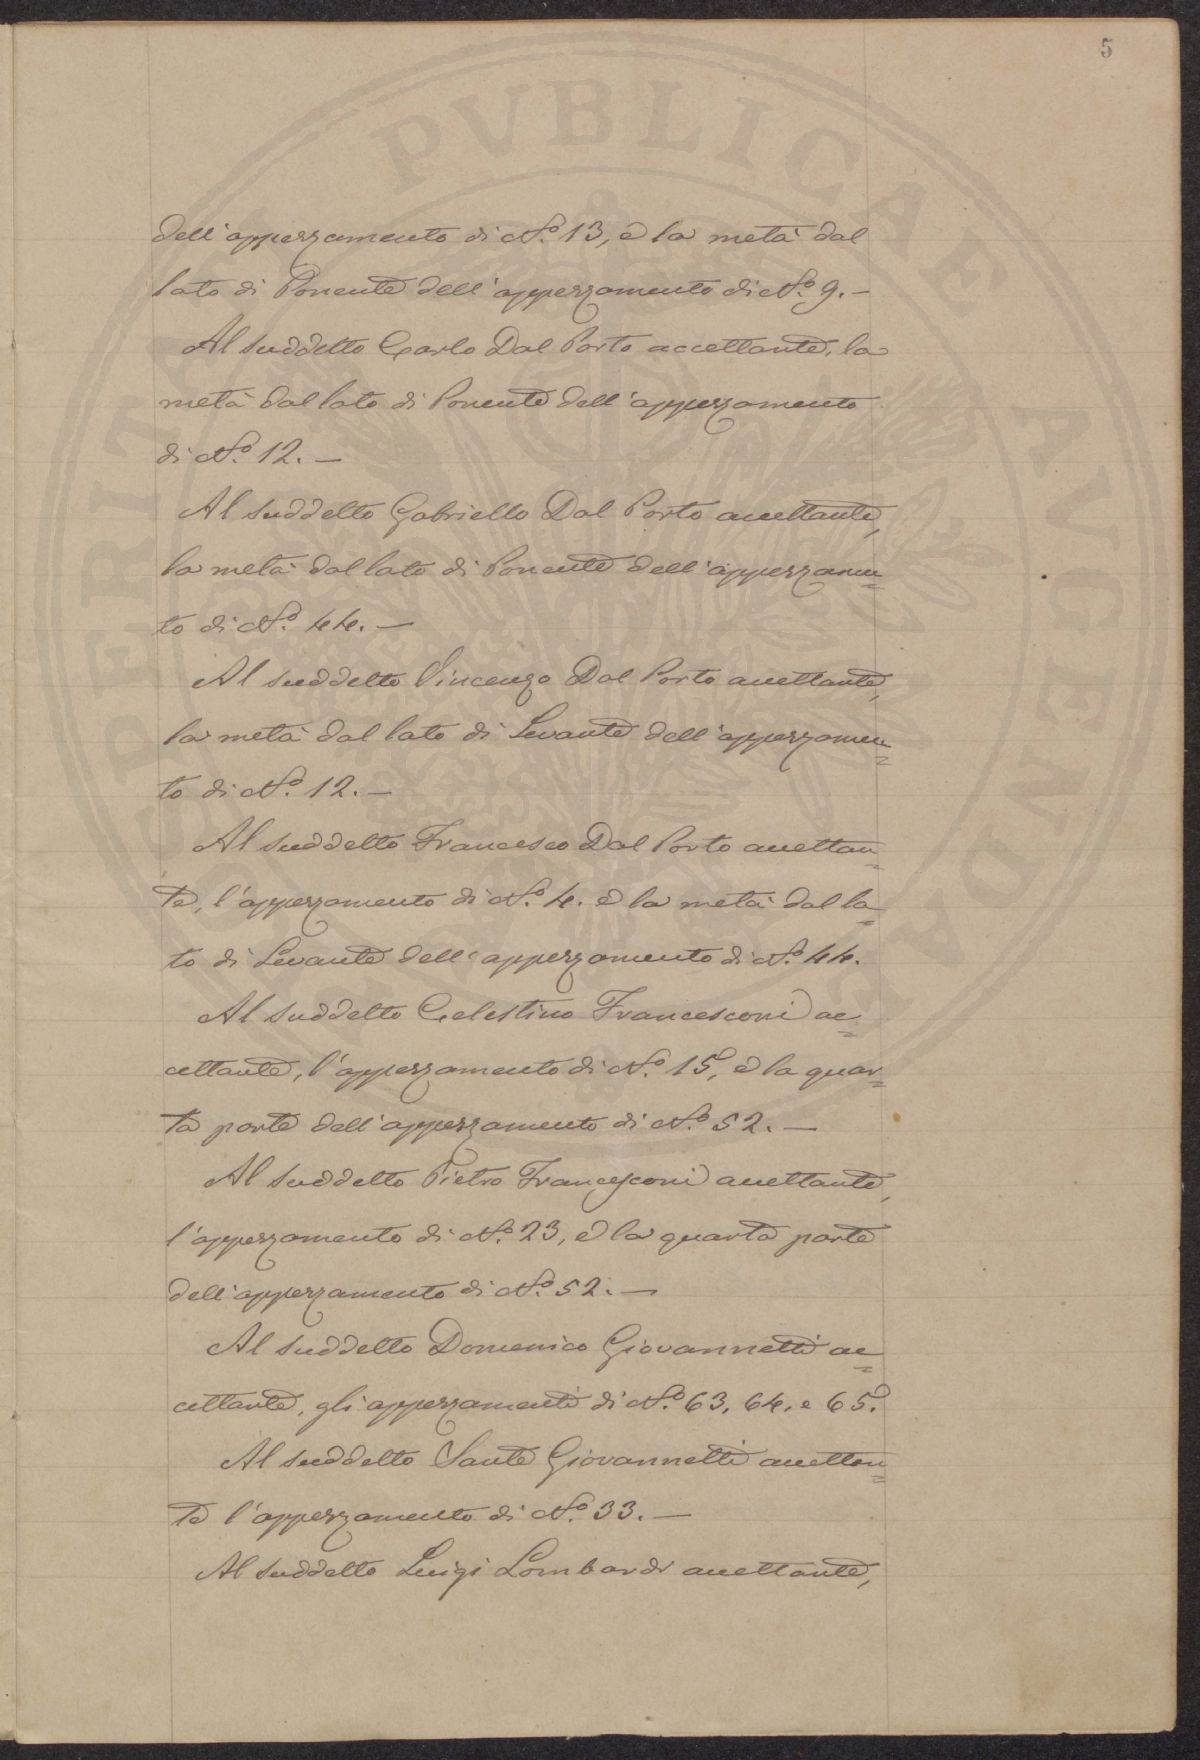 5
dell'appezzamento di N.º 13, e la metà dal
lato di Ponente dell'appezzamento di N.º 9. —
Al suddetto Carlo Dal Porto accettante, la
metà dal lato di Ponente dell'appezzamento
di N.º 12. —
Al suddetto Gabriello Dal Porto accettante,
la metà dal lato di Ponente dell'appezzamen=
to di N.º 44. —
Al suddetto Vincenzo Dal Porto accettante,
la metà dal lato di Levante dell'appezzamen=
to di N.º 12. —
Al suddetto Francesco Dal Porto accettan=
te, l'appezzamento di N.º 4. e la metà dal la=
to di Levante dell'appezzamento di N.º 44.
Al suddetto Celestino Francesconi ac=
cettante, l'appezzamento di N.º 15, e la quar=
ta parte dell'appezzamento di N.º 52. —
Al suddetto Pietro Francesconi accettante,
l'appezzamento di N.º 23, e la quarta parte
dell'appezzamento di N.º 52. —
Al suddetto Domenico Giovannetti ac=
cettante, gli appezzamenti di N.º 63, 64, e 65.
Al suddetto Sante Giovannetti accettan=
te l'appezzamento di N.º 33. —
Al suddetto Luigi Lombardi accettante,